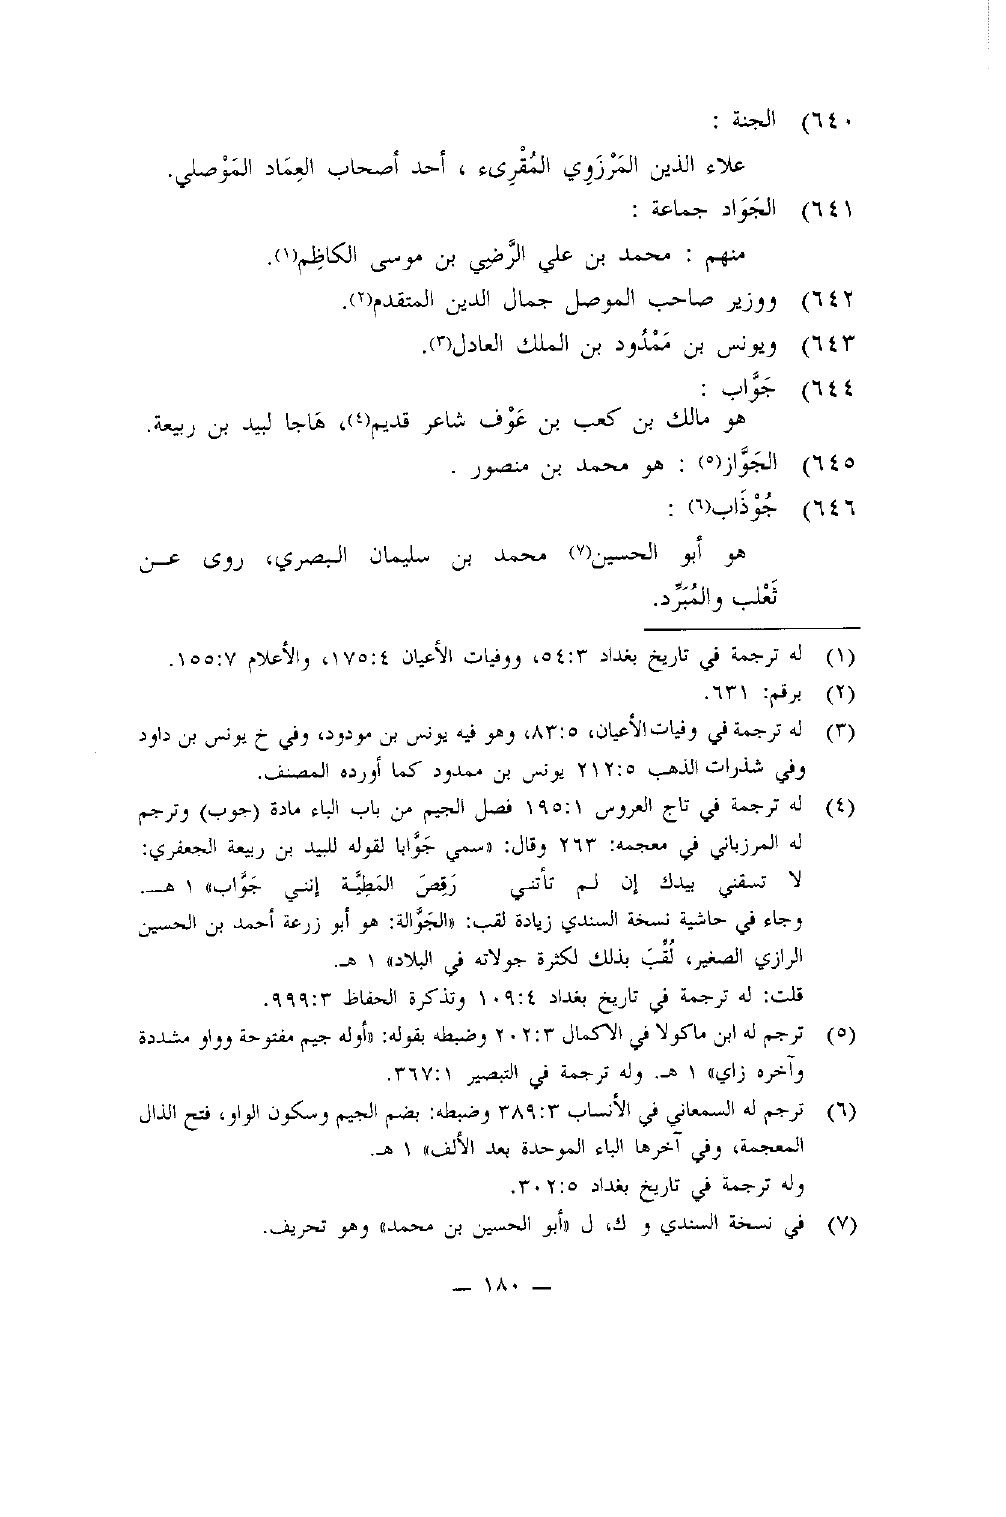 ٦٤٠) الجنة :
علاء الذين المَرْزَوِي المُقْرِىء ، أحد أصحاب العِمَاد المَوْصلي.
٦٤١) الجَوَاد جماعة :
منهم : محمد بن علي الرَّضِي بن موسى الكاظِم(١).
٦٤٢) ووزير صاحب الموصل جمال الدين المتقدم(٢).
٦٤٣) ويونس بن مَمْدُود بن الملك العادل(٣).
٦٤٤) جَوَّاب :
هو مالك بن كعب بن عَوْف شاعر قديم(٤)، هَاجا لبيد بن ربيعة.
٦٤٥) الجَوَّاز(٥) : هو محمد بن منصور .
٦٤٦) جُوْذَاب(٦) :
هو أبو الحسين(٧) محمد بن سليمان البصري، روى عن
ثَعْلب والمُبَرِّد.
(١) له ترجمة في تاريخ بغداد ٥٤:٣، ووفيات الأعيان ١٧٥:٤، والأعلام ١٥٥:٧.
(٢) برقم: ٦٣١.
(٣) له ترجمة في وفيات الأعيان، ٨٣:٥، وهو فيه يونس بن مودود، وفي خ يونس بن داود
وفي شذرات الذهب ٢١٢:٥ يونس بن ممدود كما أورده المصنف.
(٤) له ترجمة في تاج العروس ١٩٥:١ فصل الجيم من باب الباء مادة (جوب) وترجم
له المرزباني في معجمه: ٢٦٣ وقال: «سمي جَوَّابا لقوله للبيد بن ربيعة الجعفري:
لا تسقني بيدك إن لم تأتني رَقِصَ المَطِيَّة إنني جَوَّاب» ١ هـ.
وجاء في حاشية نسخة السندي زيادة لقب: «الجَوَّالة: هو أبو زرعة أحمد بن الحسين
الرازي الصغير، لُقِّبَ بذلك لكثرة جولاته في البلاد» ١ هـ.
قلت: له ترجمة في تاريخ بغداد ١٠٩:٤ وتذكرة الحفاظ ٩٩٩:٣.
(٥) ترجم له ابن ماكولا في الاكمال ٢٠٢:٣ وضبطه بقوله: «أوله جيم مفتوحة وواو مشددة
وآخره زاي» ١ هـ. وله ترجمة في التبصير ٣٦٧:١.
(٦) ترجم له السمعاني في الأنساب ٣٨٩:٣ وضبطه: بضم الجيم وسكون الواو، فتح الذال
المعجمة، وفي آخرها الباء الموحدة بعد الألف» ١ هـ.
وله ترجمة في تاريخ بغداد ٣٠٢:٥.
(٧) في نسخة السندي و ك، ل «أبو الحسين بن محمد» وهو تحريف.
— ١٨٠ —